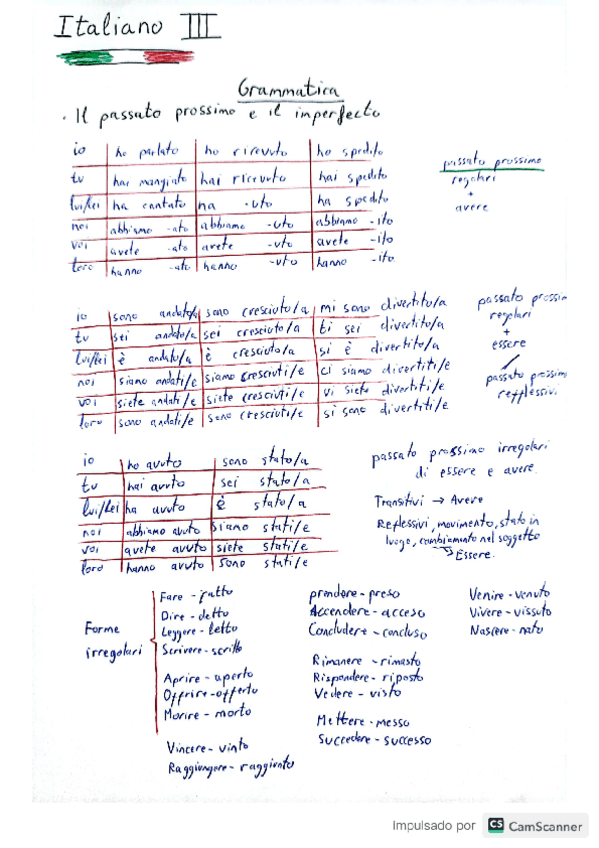 Italiano III
Grammatica
· Il passato prossimo e il imperfecto
io ho parlato ho ricevuto ho spedito
tu hai mangiato hai ricevuto hai spedito
lui/lei ha cantato ha -uto ha spedito
noi abbiamo -ato abbiamo -uto abbiamo -ito
voi avete -ato avete -uto avete -ito
loro hanno -ato hanno -uto hanno -ito
passato prossimo
regolari
+
avere
io sono andato/a sono cresciuto/a mi sono divertito/a
tu sei andato/a sei cresciuto/a ti sei divertito/a
lui/lei è andato/a è cresciuto/a si è divertito/a
noi siamo andati/e siamo cresciuti/e ci siamo divertiti/e
voi siete andati/e siete cresciuti/e vi siete divertiti/e
loro sono andati/e sono cresciuti/e si sono divertiti/e
passato prossim
regolari
+
essere
passato prossim
refflessivi
io ho avuto sono stato/a
tu hai avuto sei stato/a
lui/lei ha avuto è stato/a
noi abbiamo avuto siamo stati/e
voi avete avuto siete stati/e
loro hanno avuto sono stati/e
passato prossimo irregolari
di essere e avere.
Transitivi → Avere
Reflessivi, movimento, stato in
luogo, cambiamento nel soggetto
Essere.
Forme
irregolari
Fare - fatto
Dire - detto
Leggere - letto
Scrivere - scritto
Aprire - aperto
Offrire - offerto
Morire - morto
Vincere - vinto
Raggiungere - raggiunto
prendere - preso
Accendere - acceso
Concludere - concluso
Rimanere - rimasto
Rispondere - riposto
Vedere - visto
Mettere - messo
Succedere - successo
Venire - venuto
Vivere - vissuto
Nascere - nato
Impulsado por CS CamScanner